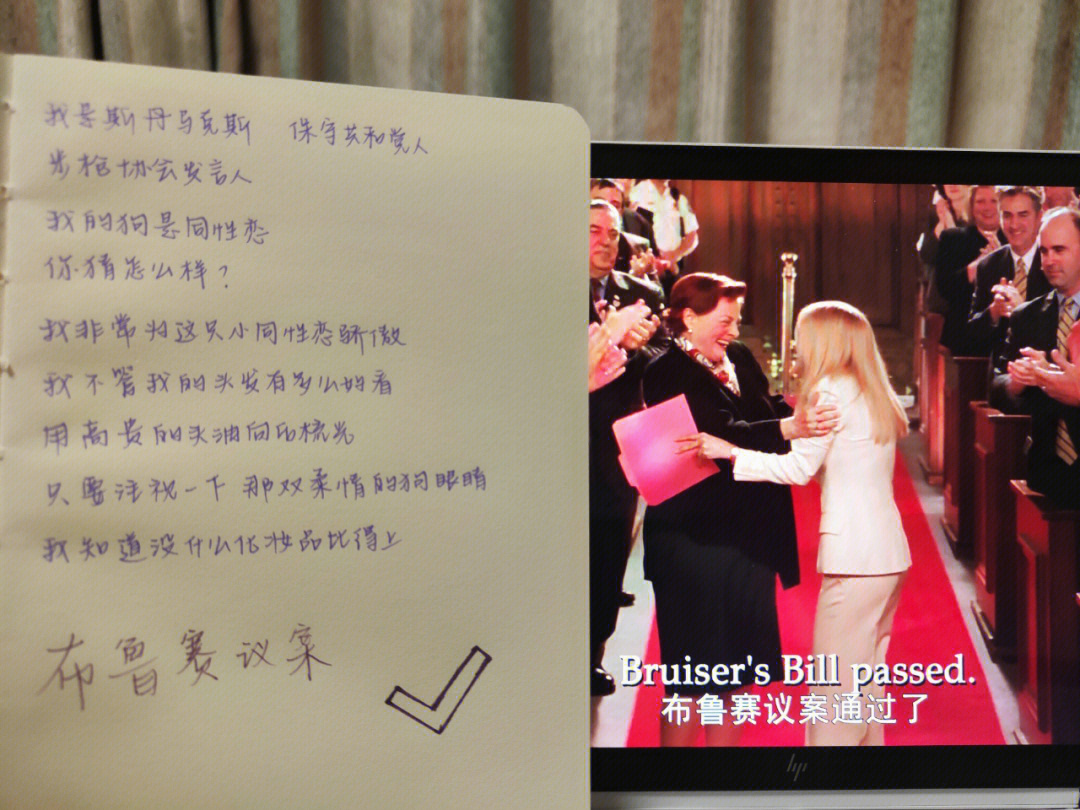 我是斯丹马克斯 保守共和党人
步枪协会发言人
我的狗是同性恋
你猜怎么样？
我非常为这只小同性恋骄傲
我不管我的头发有多么好看
用高贵的头油向后梳光
只要注视一下那双柔情的狗眼睛
我知道没什么化妆品比得上
布鲁赛议案
Bruiser's Bill passed.
布鲁赛议案通过了
hp